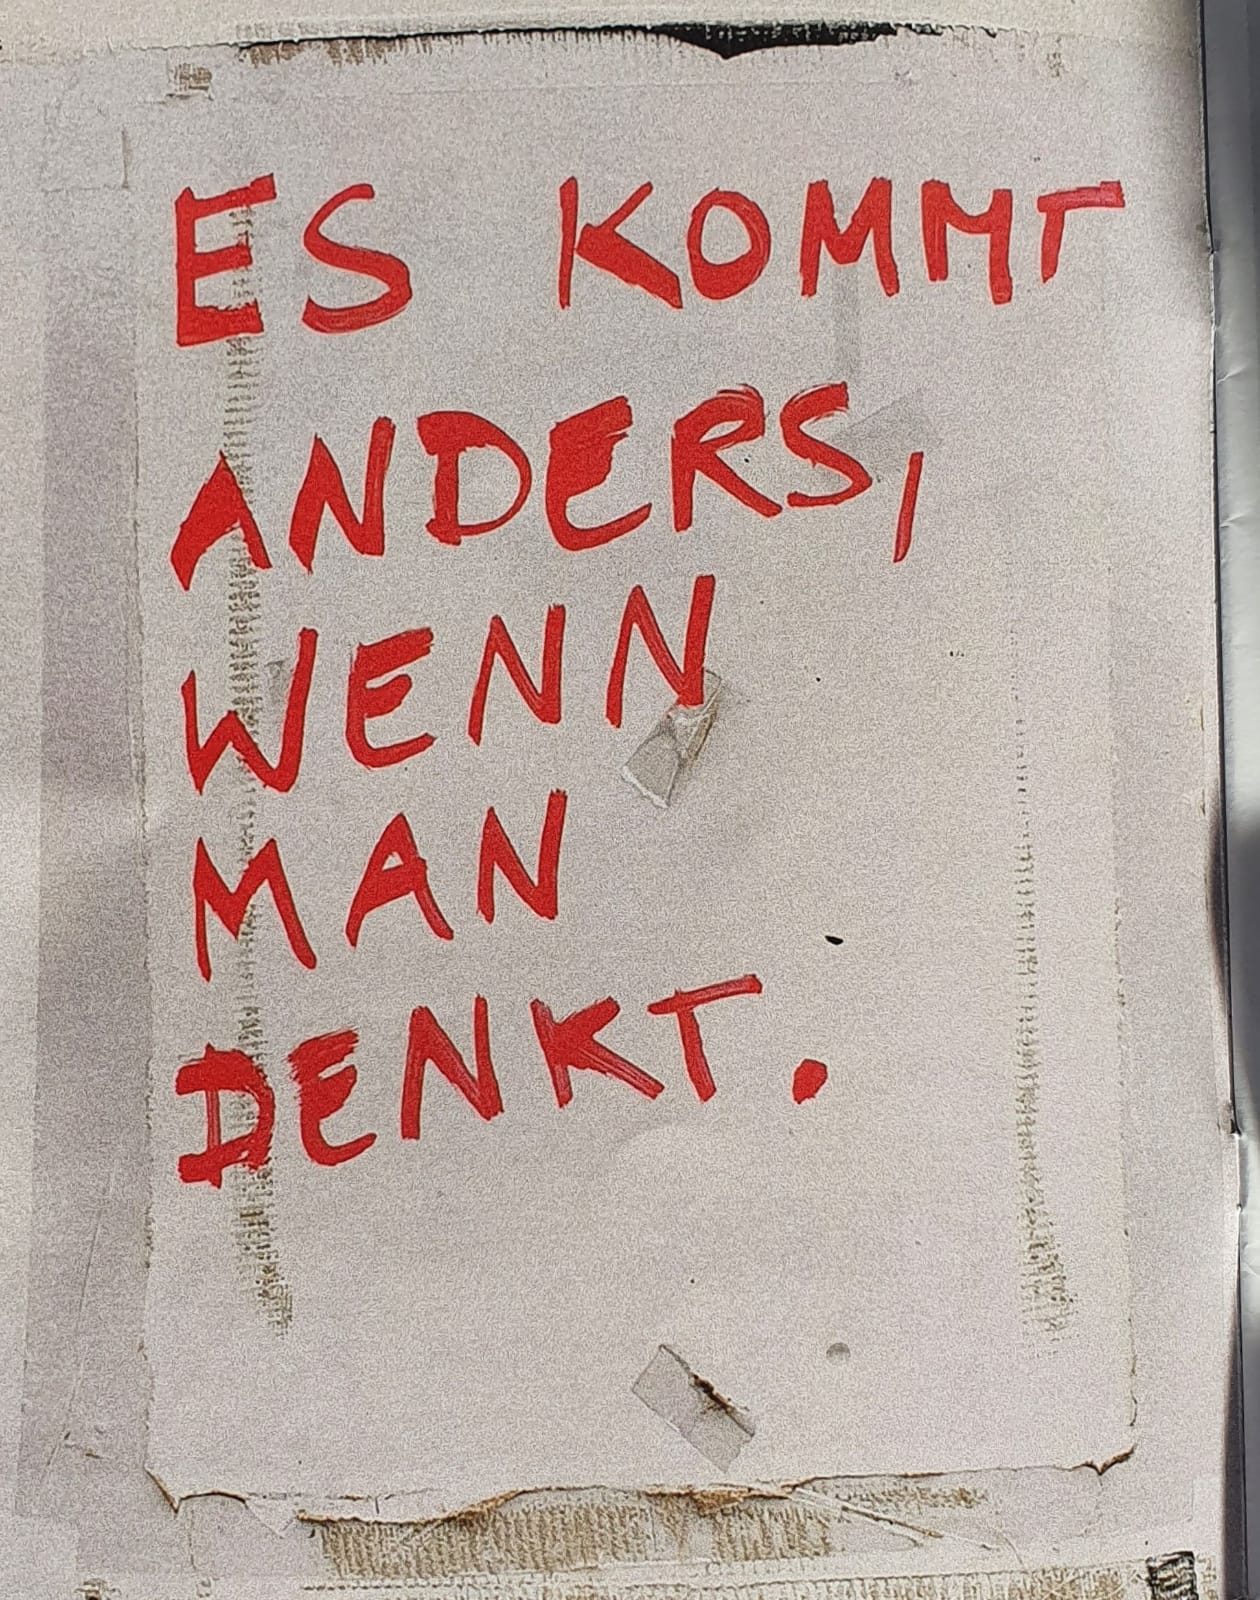 ES KOMMT
ANDERS,
WENN
MAN
DENKT.